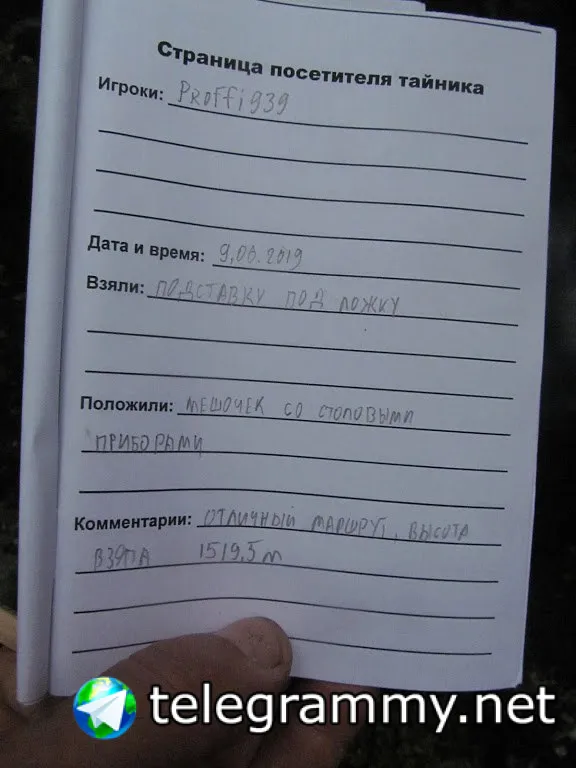 Страница посетителя тайника
Игроки: Proffi939
Дата и время: 9,06.2019
Взяли: ПОДСТАВКУ ПОД ЛОЖКУ
Положили: МЕШОЧЕК СО СТОЛОВЫМИ
ПРИБОРАМИ
Комментарии: ОТЛИЧНЫЙ МАРШРУТ, ВЫСОТА
ВЗЯТА 1519,5 м
telegrammy.net